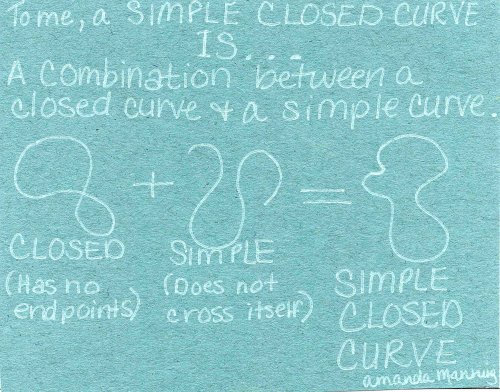 To me, a SIMPLE CLOSED CURVE
IS...
A combination between a
closed curve + a simple curve.
+ =
CLOSED
(Has no
endpoints)
SIMPLE
(Does not
cross itself)
SIMPLE
CLOSED
CURVE
amanda manning